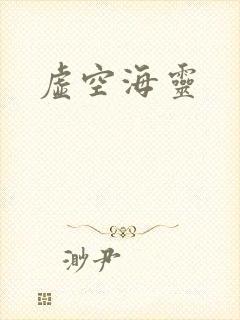 虛空海靈
渺尹